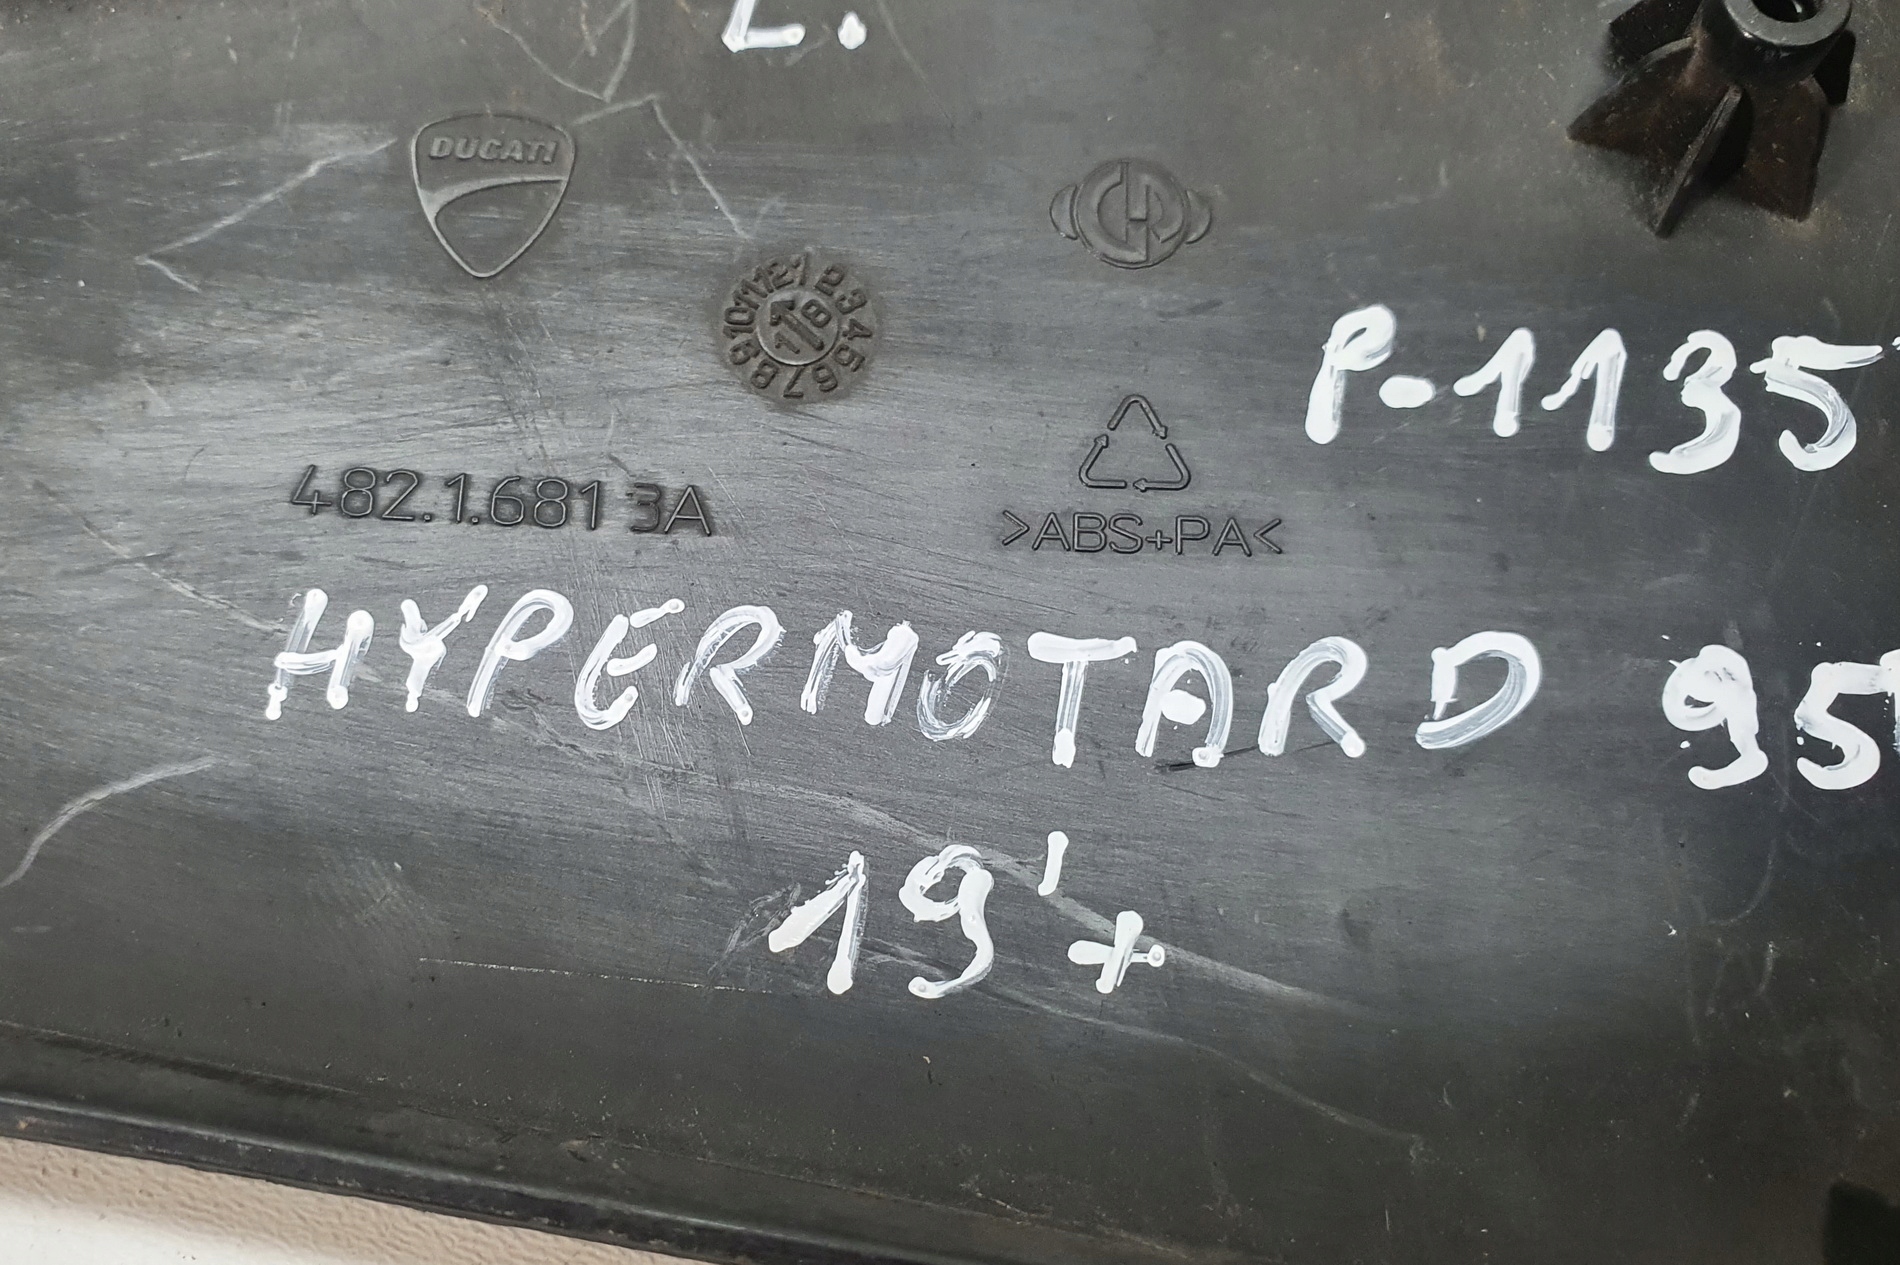 L.
DUCATI
CHR
1 2 3 4 5 6 7 8 9 10 11 12
1 8
P-1135
482.1.681 3A
>ABS+PA<
HYPERMOTARD 95
19'+